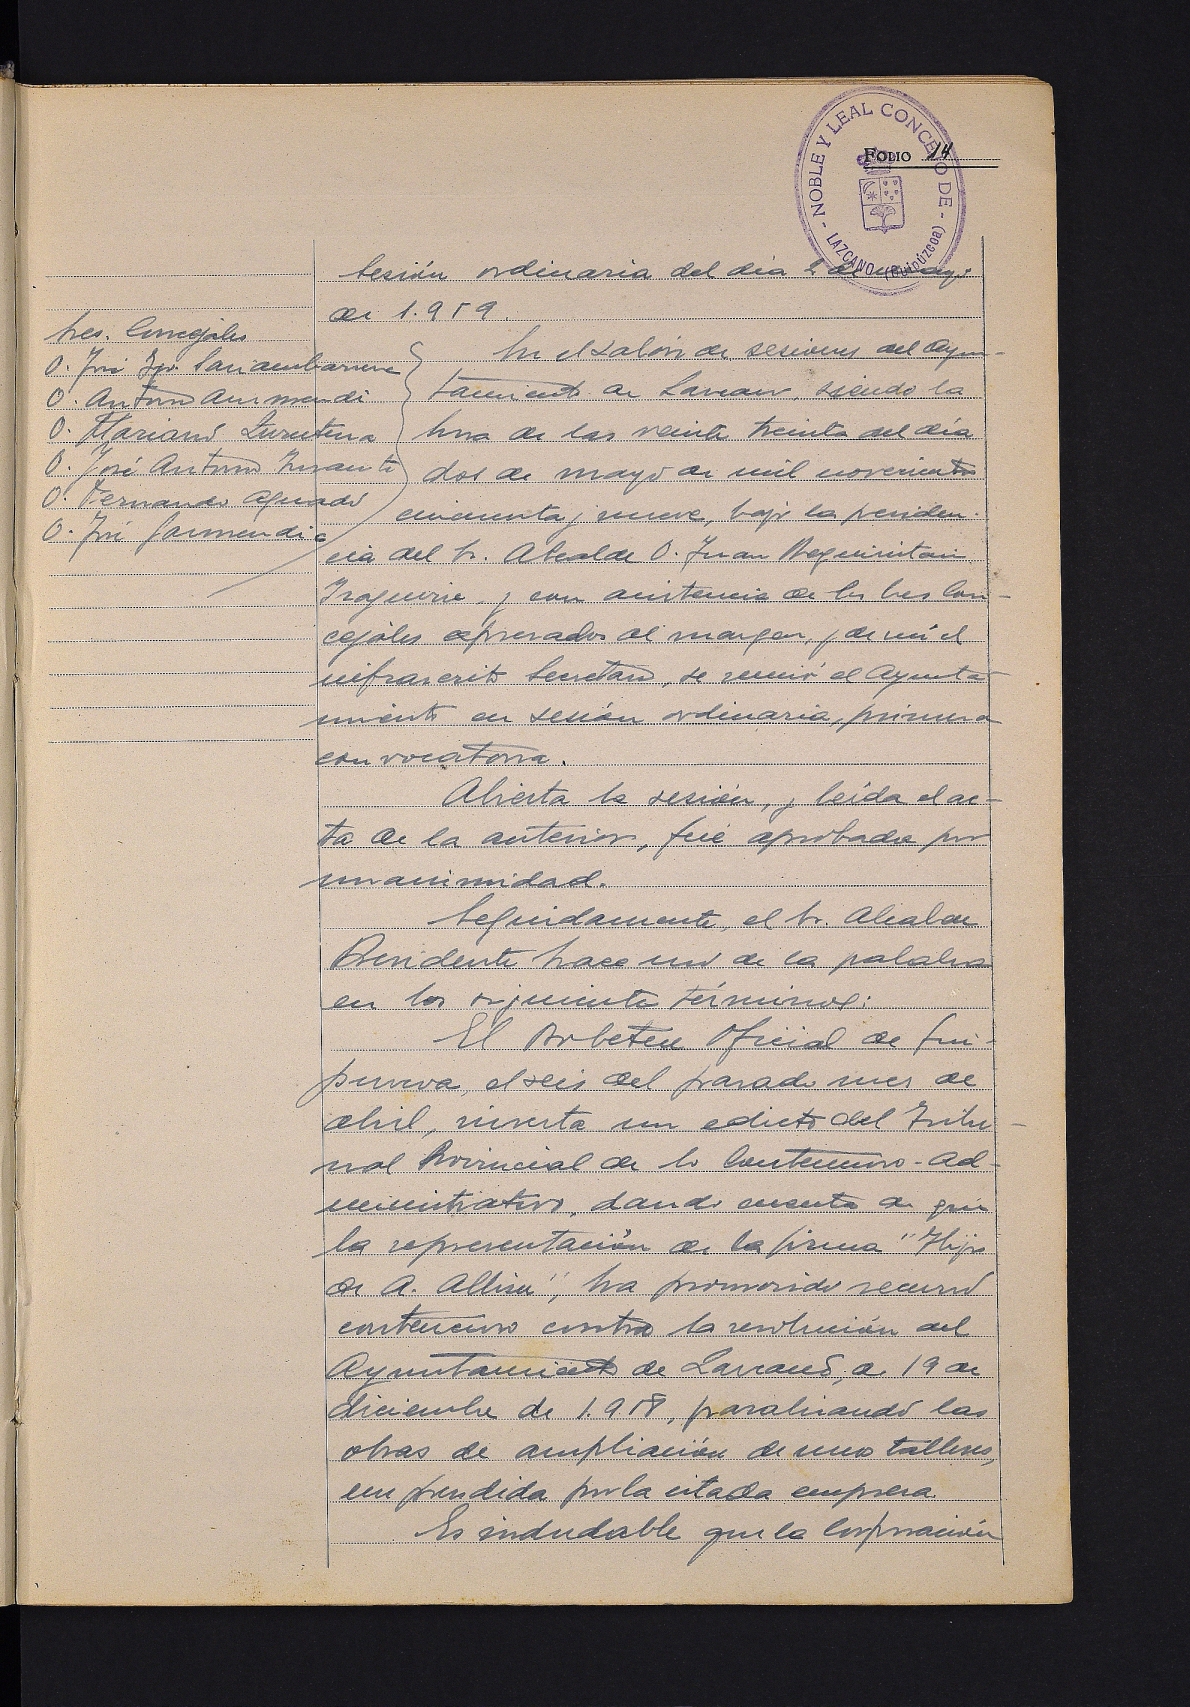 NOBLE Y LEAL CONCEJO DE - LAZCANO (Guipúzcoa)
FOLIO 14
Sesión ordinaria del día 2 de mayo
de 1.959.
Sres. Concejales
D. José Ign.
D. Antonio Aurmendi
D. Mariano
D. José Antonio
D. Fernando Aguado
D. José Garmendia
En el salón de sesiones del Ayun-
tamiento de Lazcano, siendo la
hora de las veinte treinta del día
dos de mayo de mil novecientos
cincuenta y nueve, bajo la presiden-
cia del Sr. Alcalde D. Juan Reguiristain
Iraguirre, y con asistencia de los Sres Con-
cejales expresados al margen, y de mí el
infrascrito Secretario, se reunió el Ayunta-
miento en sesión ordinaria, primera
convocatoria.
Abierta la sesión, y leída el ac-
ta de la anterior, fué aprobada por
unanimidad.
Seguidamente, el Sr. Alcalde
Presidente hace uso de la palabra
en los siguiente términos:
El Boletin Oficial de Gui-
puzcoa, el seis del pasado mes de
abril, inserta un edicto del Tribu-
nal Provincial de lo Contencioso-Ad-
ministrativo, dando cuenta de que
la representación de la firma "Hijos
de A. Albisu", ha promovido recurso
contencioso contra la resolución del
Ayuntamiento de Lazcano, de 19 de
diciembre de 1.958, paralizando las
obras de ampliación de unos talleres,
emprendida por la citada empresa.
Es indudable que la Corporación